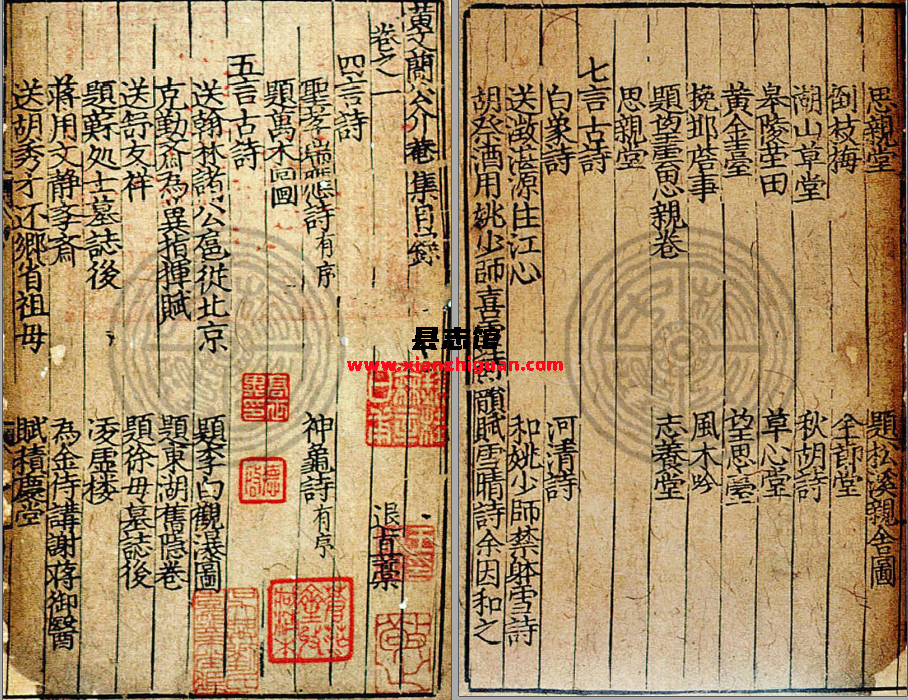 黃文簡公介菴集目録
卷之一 退直藁
四言詩
聖孝瑞應詩有序 神龜詩有序
題萬木圖
五言古詩
送翰林諸公扈從北京 題李白觀瀑圖
克勤斎為異指揮賦 題東湖舊隱巻
送舒友祥 題徐母墓誌後
題蘇処士墓誌後 凌虛楼
蔣用文静孝斎 為金侍講謝蒋御醫
送胡秀才还鄉省祖母 賦積慶堂
思親堂 題松溪親舎圖
倒枝梅 全節堂
湖山草堂 秋胡詩
田 草心堂
黃金臺 望思臺
挽 事 風木吟
題望雲思親巻 志養堂
思親堂
七言古詩
白象詩 河清詩
送 源住江心 和姚少師禁躰雪詩
胡祭酒用姚少師喜雪詩韻賦雪晴詩余因和之
县志馆
www.xianzhiguan.com